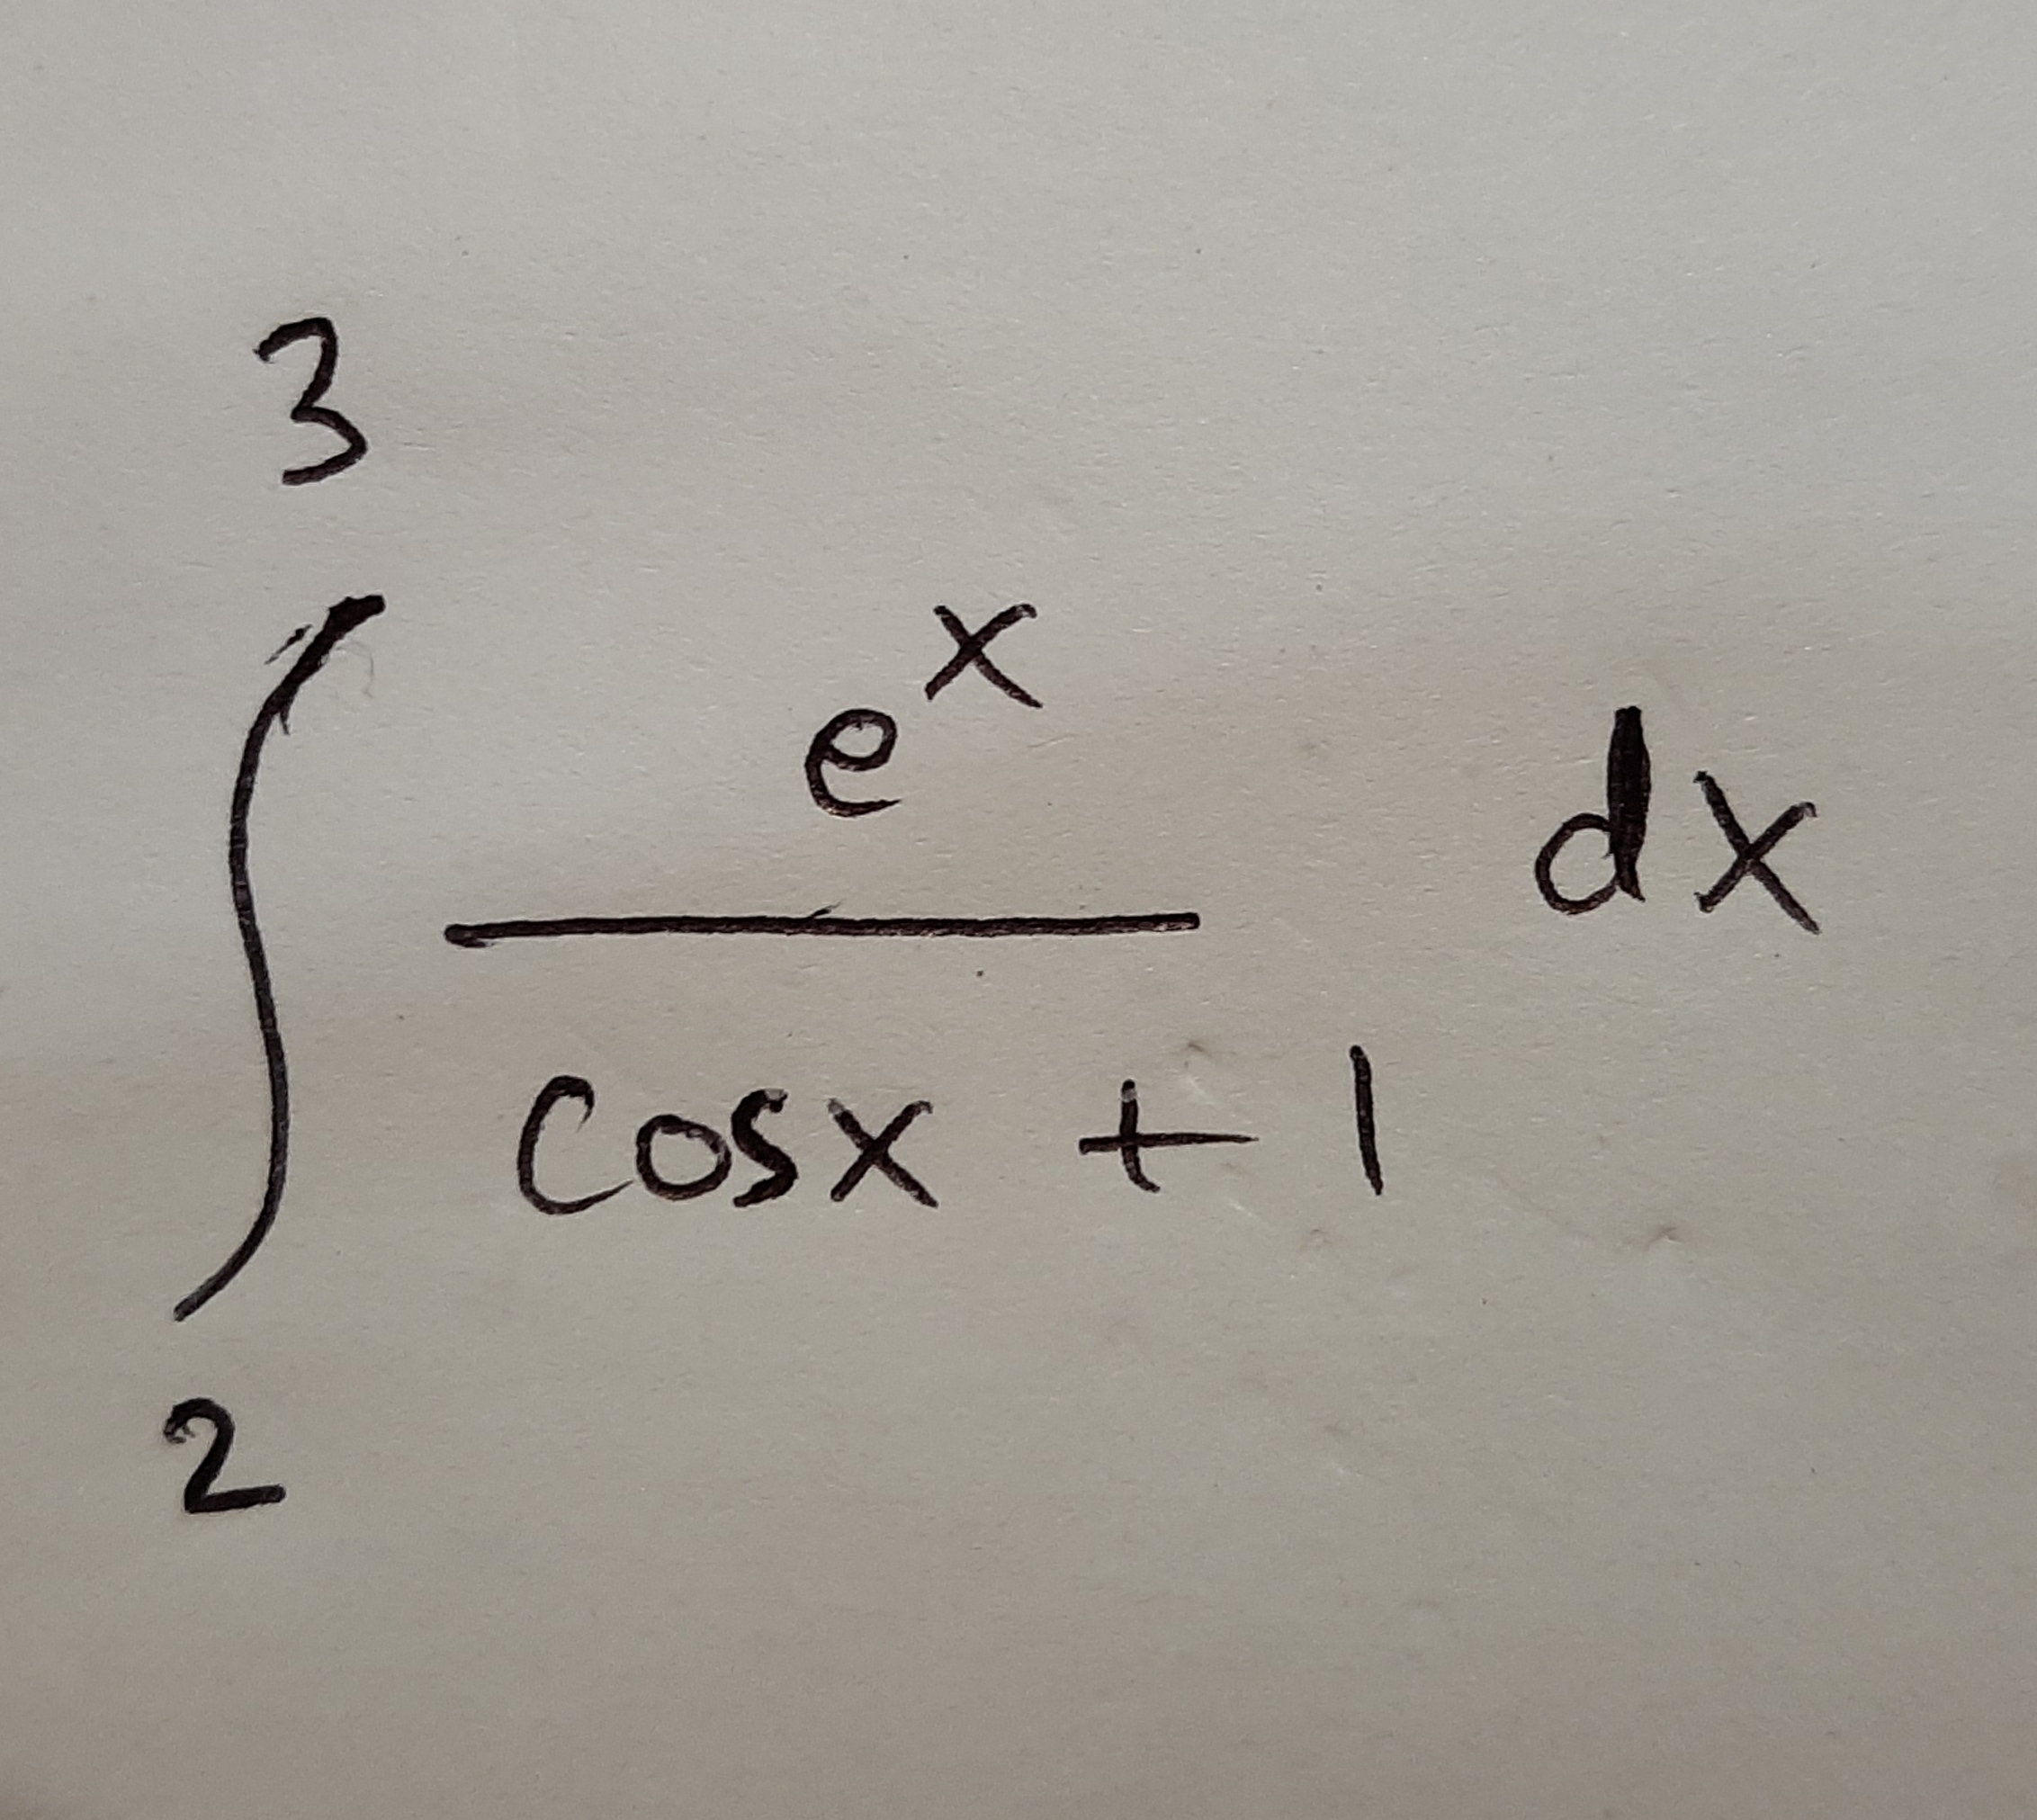 3
∫ e^x / (cosx + 1) dx
2